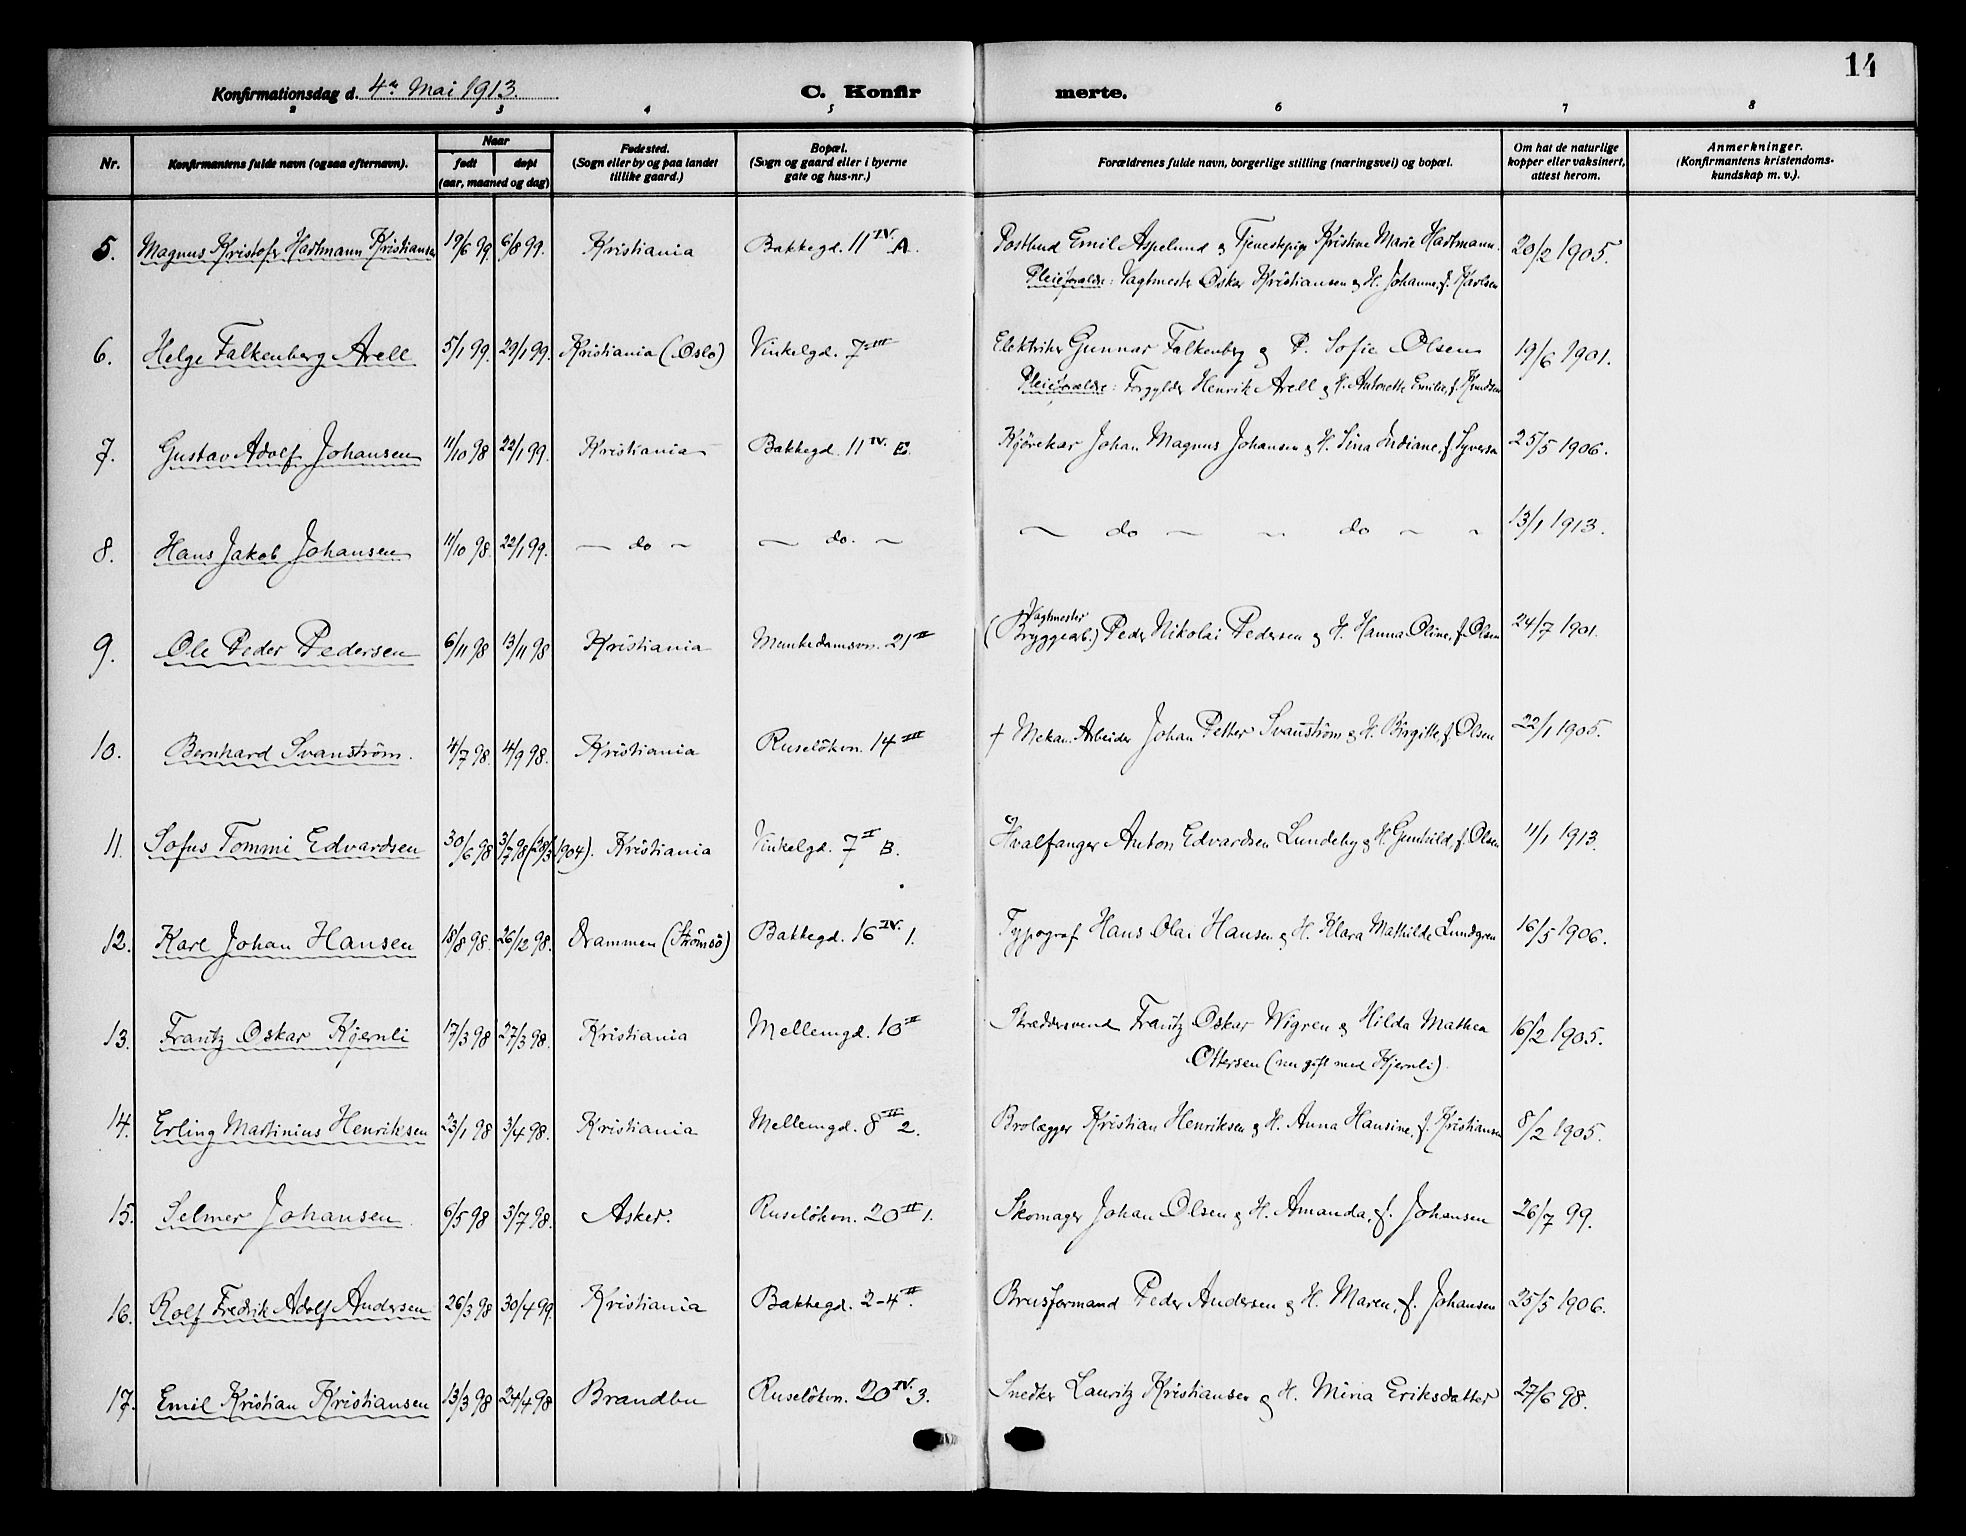 14
Konfirmationsdag d. 4de Mai 1913. C. Konfirmerte.
2 3 4 5 6 7 8
Nr. Konfirmantens fulde navn (ogsaa efternavn). Naar født døpt (aar, maaned og dag) Fødested. (Sogn eller by og paa landet tillike gaard.) Bopæl. (Sogn og gaard eller i byerne gate og hus-nr.) Forældrenes fulde navn, borgerlige stilling (næringsvei) og bopæl. Om hat de naturlige kopper eller vaksinert, attest herom. Anmerkninger. (Konfirmantens kristendomskundskap m. v.).
5. Magnus Kristofer Hartmann Kristiansen 19/6 99. 6/8 99. Kristiania Bakkegd. 11 IV. A. Postbud Emil Aspelund & Tjenestepige Kristine Marie Hartmann. 20/2 1905.
Pleieforældre: Vagtmester Oskar Kristiansen & H. Johanne, f. Karlsen
6. Helge Falkenberg Arell 5/1 99. 29/1 99. Kristiania (Oslo) Vinkelgd. 7 III Elektriker Gunnar Falkenberg & P. Sofie Olsen 19/6 1901.
Pleieforældre: Forgylder Henrik Arell & H. Antonette Emilie, f. Knudsen
7. Gustav Adolf Johansen 11/10 98 22/1 99. Kristiania Bakkegd. 11 IV. E. Kjørekar Johan Magnus Johansen & H. Sina Indiane, f. Syversen 25/5 1906.
8. Hans Jakob Johansen 11/10 98. 22/1 99. — do — — do. — — do — — do — — 13/1 1913.
9. Ole Peder Pedersen 6/11 98 13/11 98 Kristiania Munkedamsvn. 21 II Vagtmester (Bryggearb.) Peder Nikolai Pedersen & H. Hanna Oline, f. Olsen 24/7 1901.
10. Bernhard Svanström. 4/7 98. 4/9 98. Kristiania Ruselökvn. 14 III † Mekan. Arbeider Johan Petter Svanström & H. Birgitte, f. Olsen 22/1 1905.
11. Sofus Tommi Edvardsen 30/6 98 3/7 98 (28/3 1904). Kristiania Vinkelgd. 7 II B. Hvalfanger Anton Edvardsen Lundeby & H. Gunhild, f. Olsen 11/1 1913.
12. Karl Johan Hansen 18/8 98. 26/12 98. Drammen (Strömsö) Bakkegd. 16 IV. 1. Typograf Hans Olai Hansen & H. Klara Mathilde Lundgren 16/5 1906.
13. Frantz Oskar Kjernli 17/3 98 27/3 98. Kristiania Mellemgd. 10 II Skræddersvend Frantz Oskar Wigren & Hilda Mathea 16/2 1905.
Ottersen (nu gift med Kjernli).
14. Erling Martinius Henriksen 23/1 98 3/4 98. Kristiania Mellemgd. 8 II 2. Brolægger Kristian Henriksen & H. Anna Hansine, f. Kristiansen 8/2 1905.
15. Selmer Johansen 6/5 98 3/7 98. Asker. Ruselökvn. 20 II 1. Skomager Johan Olsen & H. Amanda, f. Johansen 26/7 99.
16. Rolf Fredrik Adolf Andersen 26/3 98 30/4 99. Kristiania Bakkegd. 2-4 II. Brusformand Peder Andersen & H. Maren, f. Johansen 25/5 1906.
17. Emil Kristian Kristiansen 13/3 98 24/4 98 Brandbu Ruselökvn. 20 IV. 3. Snedker Lauritz Kristiansen & H. Mina Eriksdatter 27/6 98.